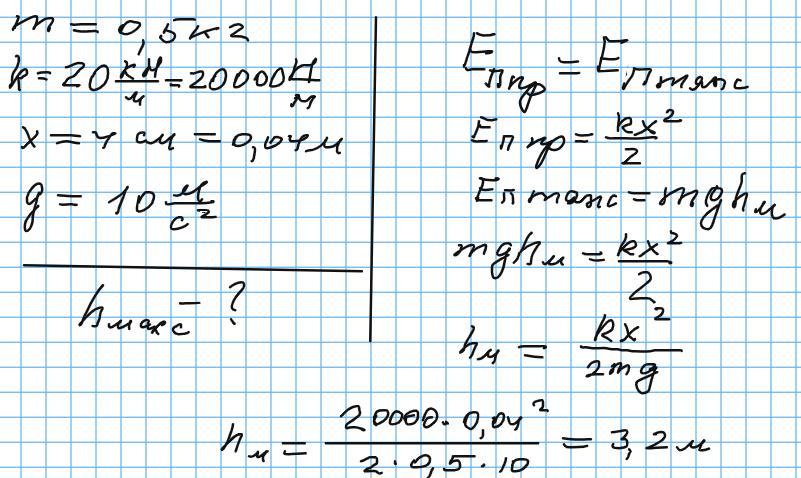 m = 0,5 кг
k = 20 кН/м = 20000 Н/м
x = 4 см = 0,04 м
g = 10 м/с²
hмакс - ?
Eп пр = Eп тяж
Eп пр = kx²/2
Eп тяж = mghм
mghм = kx²/2
hм = kx²/2mg
hм = 20000·0,04²/2·0,5·10 = 3,2 м